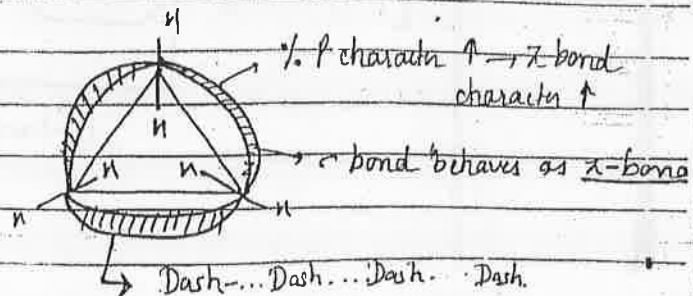 H
% P character ↑ → π bond
character ↑
H
bond behaves as π-bond
H H
H H
Dash-... Dash... Dash... Dash.